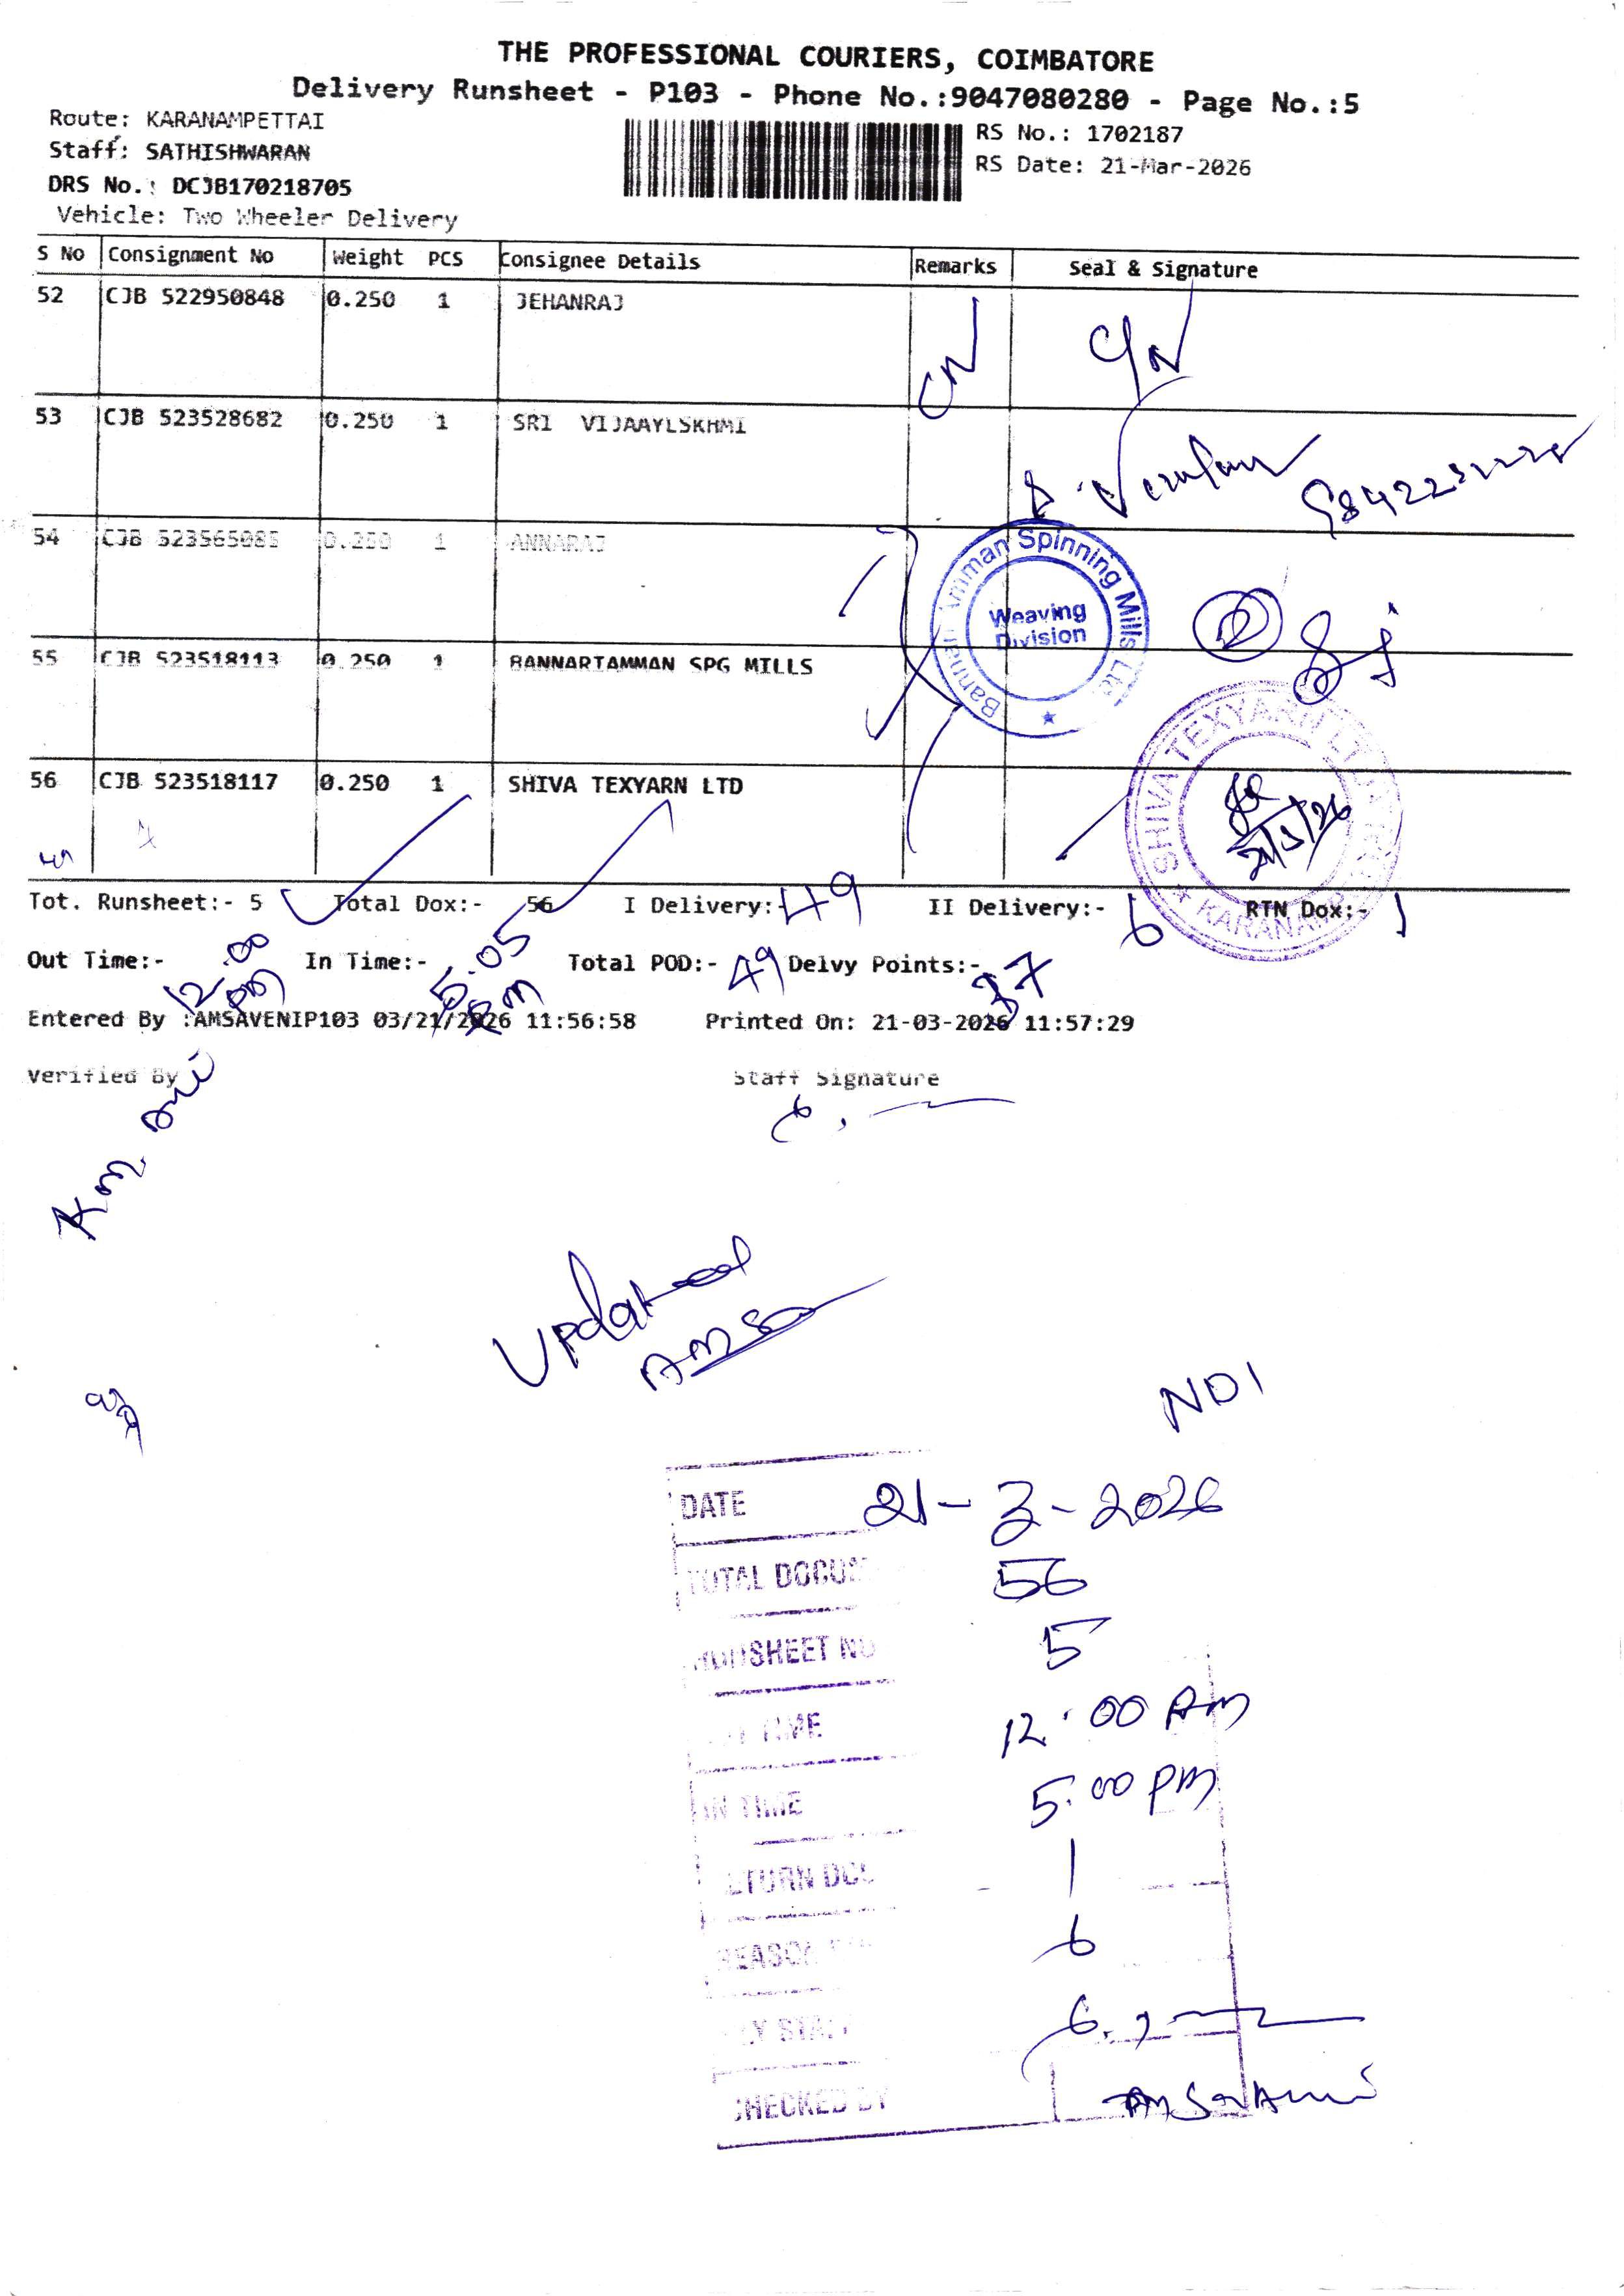 THE PROFESSIONAL COURIERS, COIMBATORE
Delivery Runsheet - P103 - Phone No.:9047080280 - Page No.:5
Route: KARANAMPETTAI
RS No.: 1702187
Staff: SATHISHWARAN
RS Date: 21-Mar-2026
DRS No.: DCJB170218705
Vehicle: Two Wheeler Delivery
S No Consignment No Weight PCS Consignee Details Remarks Seal & Signature
52 CJB 522950848 0.250 1 JEHANRAJ
CN C/N
53 CJB 523528682 0.250 1 SRI VIJAAYLSKHMI
54 CJB 523565085 0.250 1 ANNARAJ
Bannari Amman Spinning Mills Ltd
Weaving
Division
55 CJB 523518113 0.250 1 BANNARIAMMAN SPG MILLS
56 CJB 523518117 0.250 1 SHIVA TEXYARN LTD
SHIVA TEXYARN LTD
21/3/26
Tot. Runsheet:- 5 Total Dox:- 56 I Delivery:- 49 II Delivery:- 6 RTN Dox:- 1
Out Time:- 12.00 pm In Time:- 5.05 pm Total POD:- 49 Delvy Points:- 37
Entered By :AMSAVENIP103 03/21/2026 11:56:58 Printed On: 21-03-2026 11:57:29
Verified By Staff Signature
Updated
AMSA
ND1
DATE 21-3-2026
TOTAL DOCUM 56
RUNSHEET NO 5
TIME 12.00 Am
IN TIME 5.00 pm
RETURN DOC 1
REASON 6
CHECKED BY